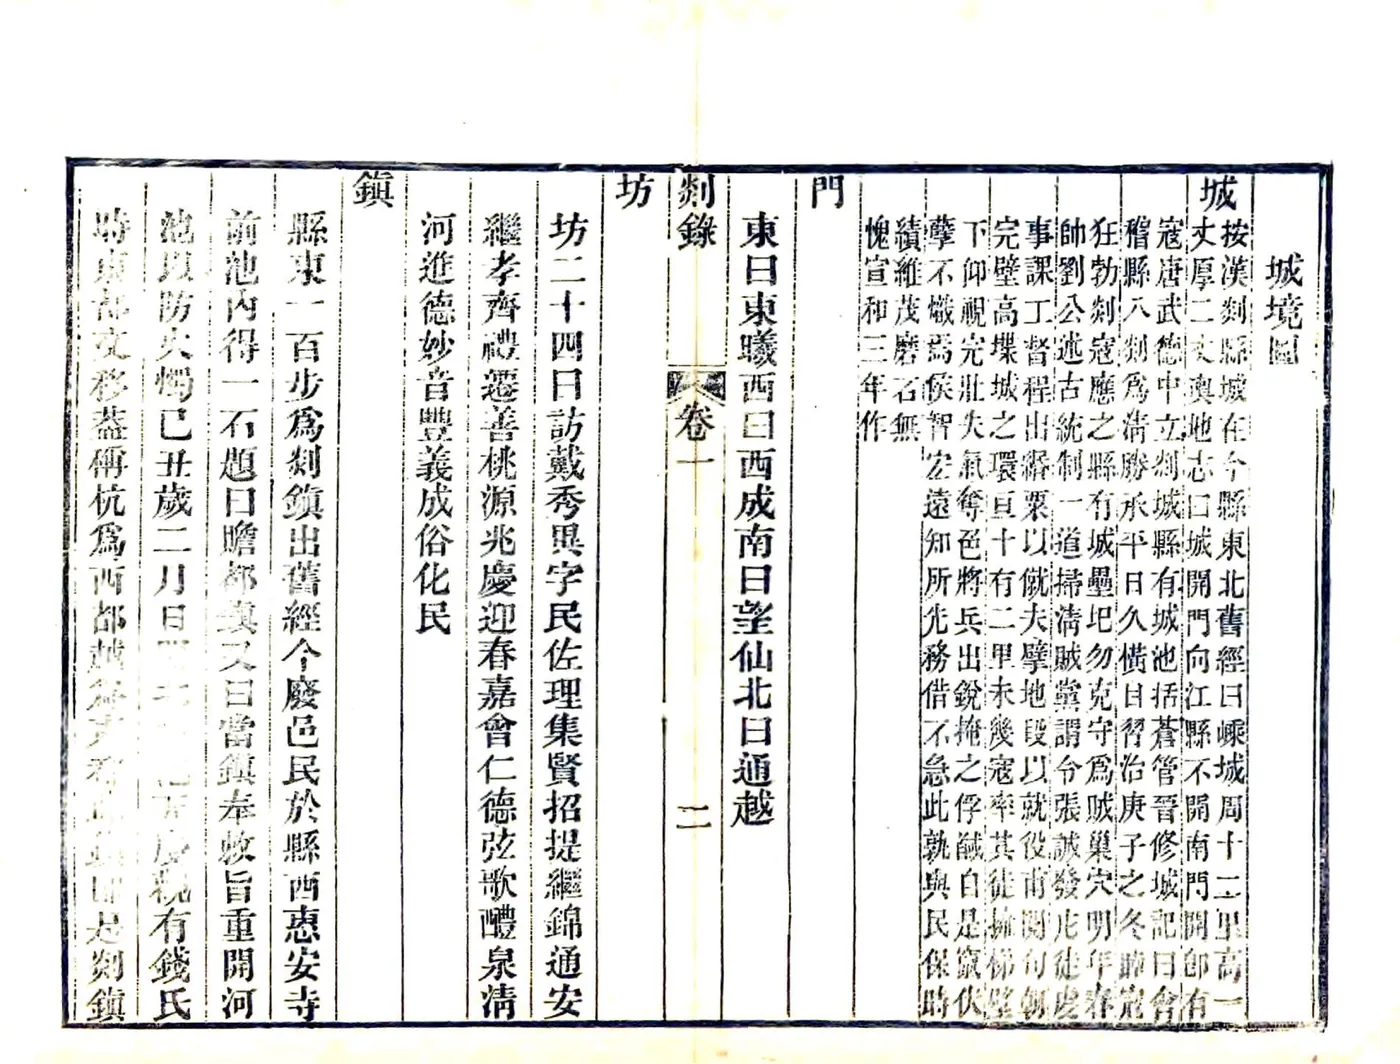 城境圖
城
按漢剡縣城在今縣東北舊經曰嵊城周十二里高一
丈厚二丈輿地志曰城開門向江縣不開南門開卽有
寇唐武德中立剡城縣有城池括蒼管晉修城記曰會
稽縣八剡爲淸勝承平日久橫目習治庚子之冬睦寇
狂勃剡寇應之縣有城壘圯勿克守爲賊巢穴明年春
帥劉公述古統制一道掃淸賊黨謂令張誠發庀徒度
事課丁督程出縉粟以僦夫擘地段以就役甫閱旬朝
完壁高堞城之環亘十有二里未幾寇率其徒擁梯壁
下仰視完壯失氣奪邑將兵出銳掩之俘馘自是竄伏
孽不熾焉侯智宏遠知所先務借不急此孰與民保時
績維茂磨石無
愧宣和三年作
門
東曰東曦西曰西成南曰望仙北曰通越
剡錄 卷一 二
坊
坊二十四曰訪戴秀異字民佐理集賢招提繼錦通安
繼孝齊禮遷善桃源兆慶迎春嘉會仁德弦歌醴泉淸
河進德妙音豐義成俗化民
鎭
縣東一百步爲剡鎭出舊經今廢邑民於縣西惠安寺
前池內得一石題曰贍都鎭又曰當鎭奉敕旨重開河
池以防火燭己丑歲二月日 有錢氏
時東都文移蓋傳杭爲西都越爲 是剡鎭